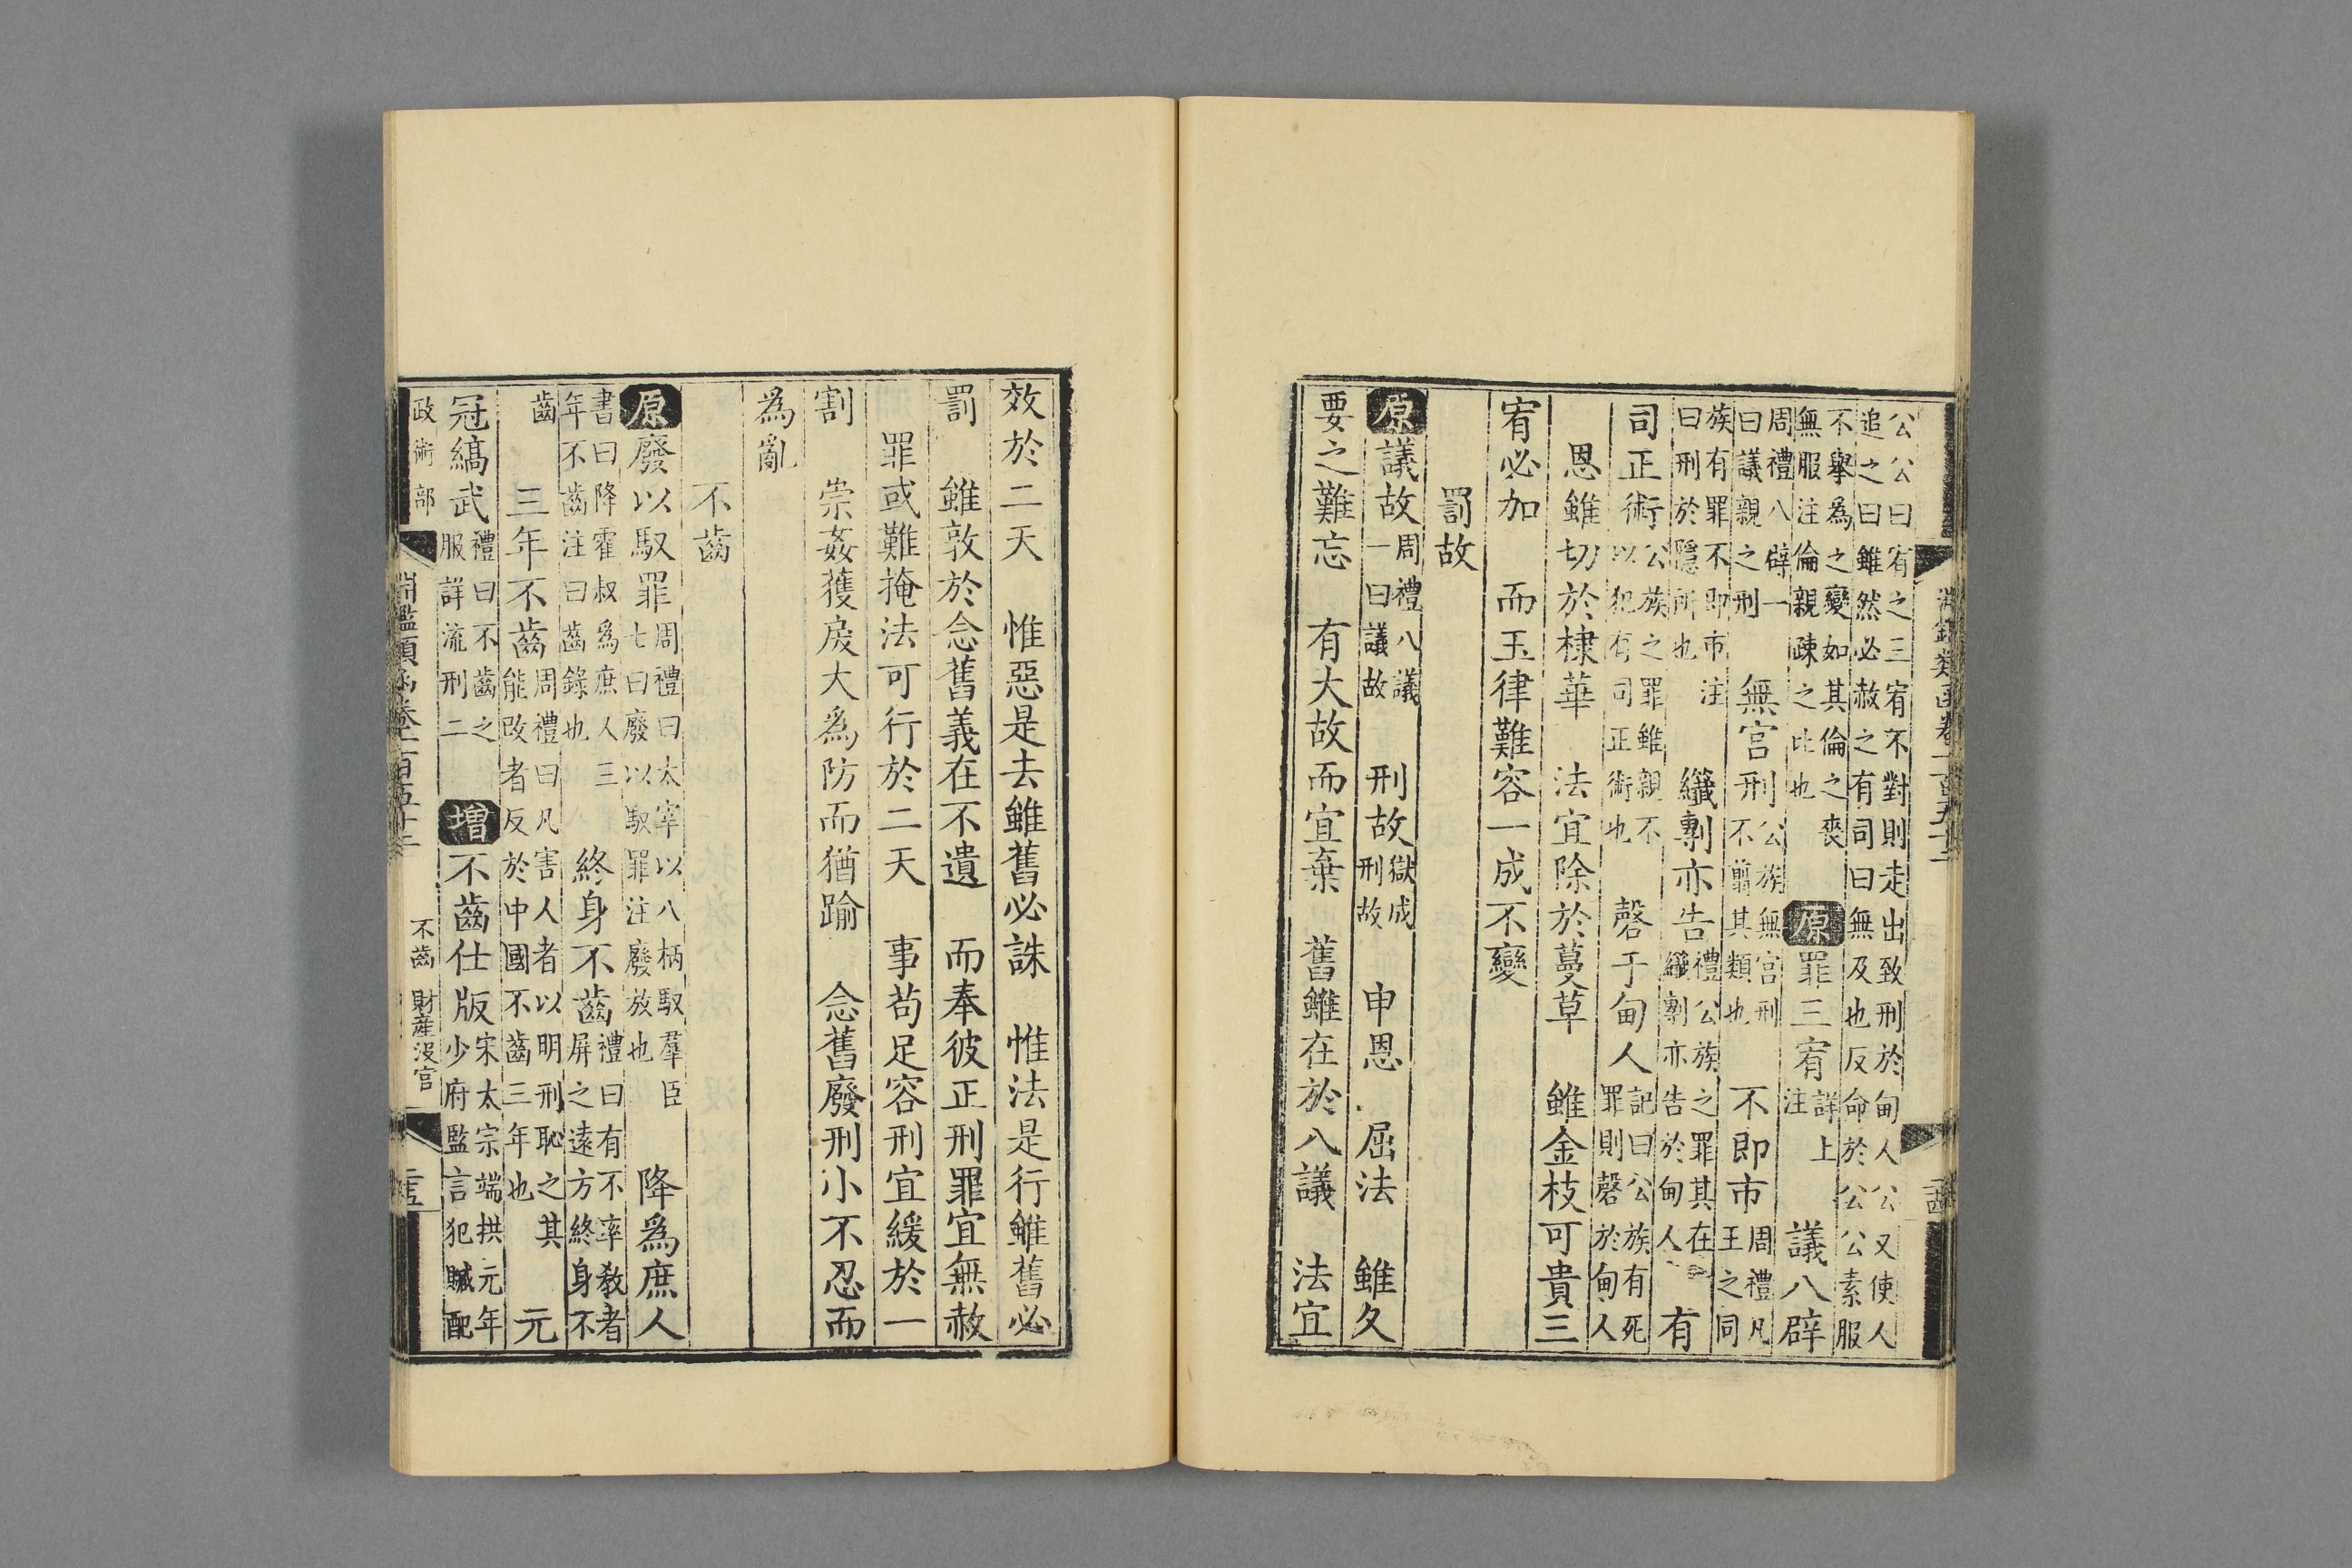 淵鑑類函卷一百五十二
公公曰宥之三宥不對則走出致刑於甸人公又使人
追之曰雖然必赦之有司曰無及也反命於公公素服
不舉為之變如其倫之喪
無服注倫親疎之比也
原罪三宥詳上注 議八辟
周禮八辟一
曰議親之刑
無宮刑公族無宮刑不翦其類也 不即市周禮凡王之同
族有罪不即市注
曰刑於隱所也
纖剸亦告禮公族之罪其在纖剸亦告於甸人 有
司正術公族之罪雖親不以犯有司正術也 磬于甸人記曰公族有死罪則磬於甸人
恩雖切於棣華 法宜除於蔓草 雖金枝可貴三
宥必加 而玉律難容一成不變
罰故
原議故周禮八議一曰議故 刑故獄成刑故 申恩 屈法 雖久
要之難忘 有大故而宜棄 舊雖在於八議 法宜
效於二天 惟惡是去雖舊必誅 惟法是行雖舊必
罰 雖敦於念舊義在不遺 而奉彼正刑罪宜無赦
罪或難掩法可行於二天 事苟足容刑宜緩於一
割 崇姦獲戾大為防而猶踰 念舊廢刑小不忍而
為亂
不齒
原廢以馭罪周禮曰太宰以八柄馭羣臣七曰廢以馭罪注廢放也 降為庶人
書曰降霍叔為庶人三
年不齒注曰齒錄也
終身不齒禮曰有不率教者屏之遠方終身不
齒
三年不齒周禮曰凡害人者以明刑恥之其能改者反於中國不齒三年也 元
冠縞武禮曰不齒之服詳流刑二 增不齒仕版宋太宗端拱元年少府監言犯贓配
政術部
淵鑑類函卷一百五十二
不齒 財產沒官